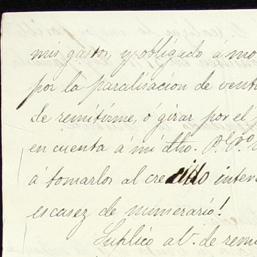 mis gastos, y obligado á mo
por la paralisacion de vent
se remitirme, ó girar por el p
en cuenta á mi dho. P.
á tomarlos al crecido inter
escasez de numerario!
Suplico al V. de rem